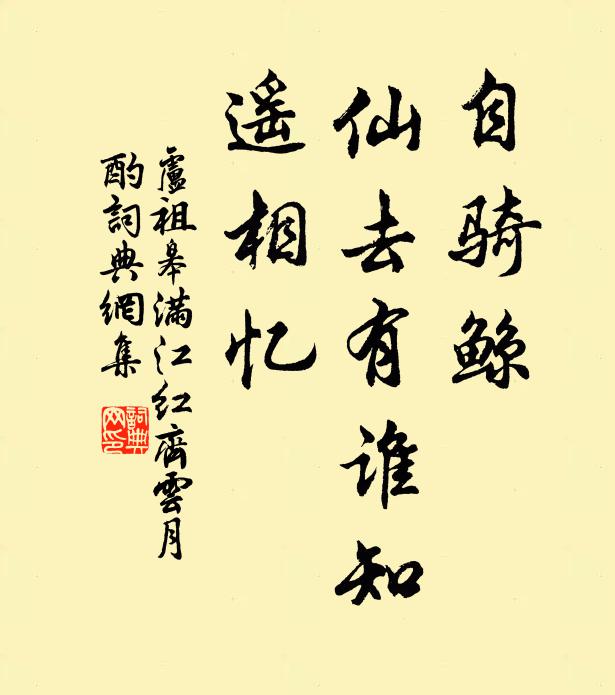 自骑鲸
仙去有谁知
遥相忆
盧祖皋满江红齊雲月
酌詞典網集
詞典
网印